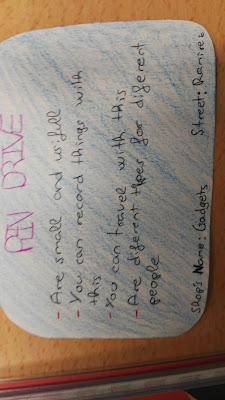 PEN DRIVE
- Are small and usifull
- You can record things with
this
- You can travel with this
- Are diferent types for diferent
people
Shop's Name: Gadgets Street: Ramirez